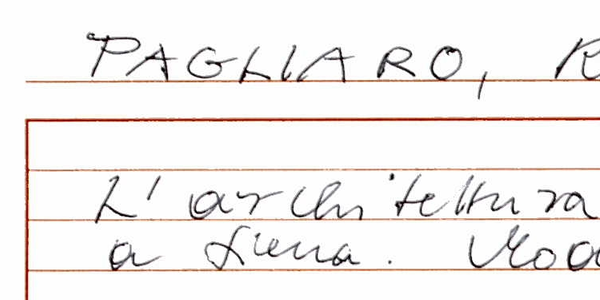 PAGLIARO, R
L'architettura
a Siena. Mod